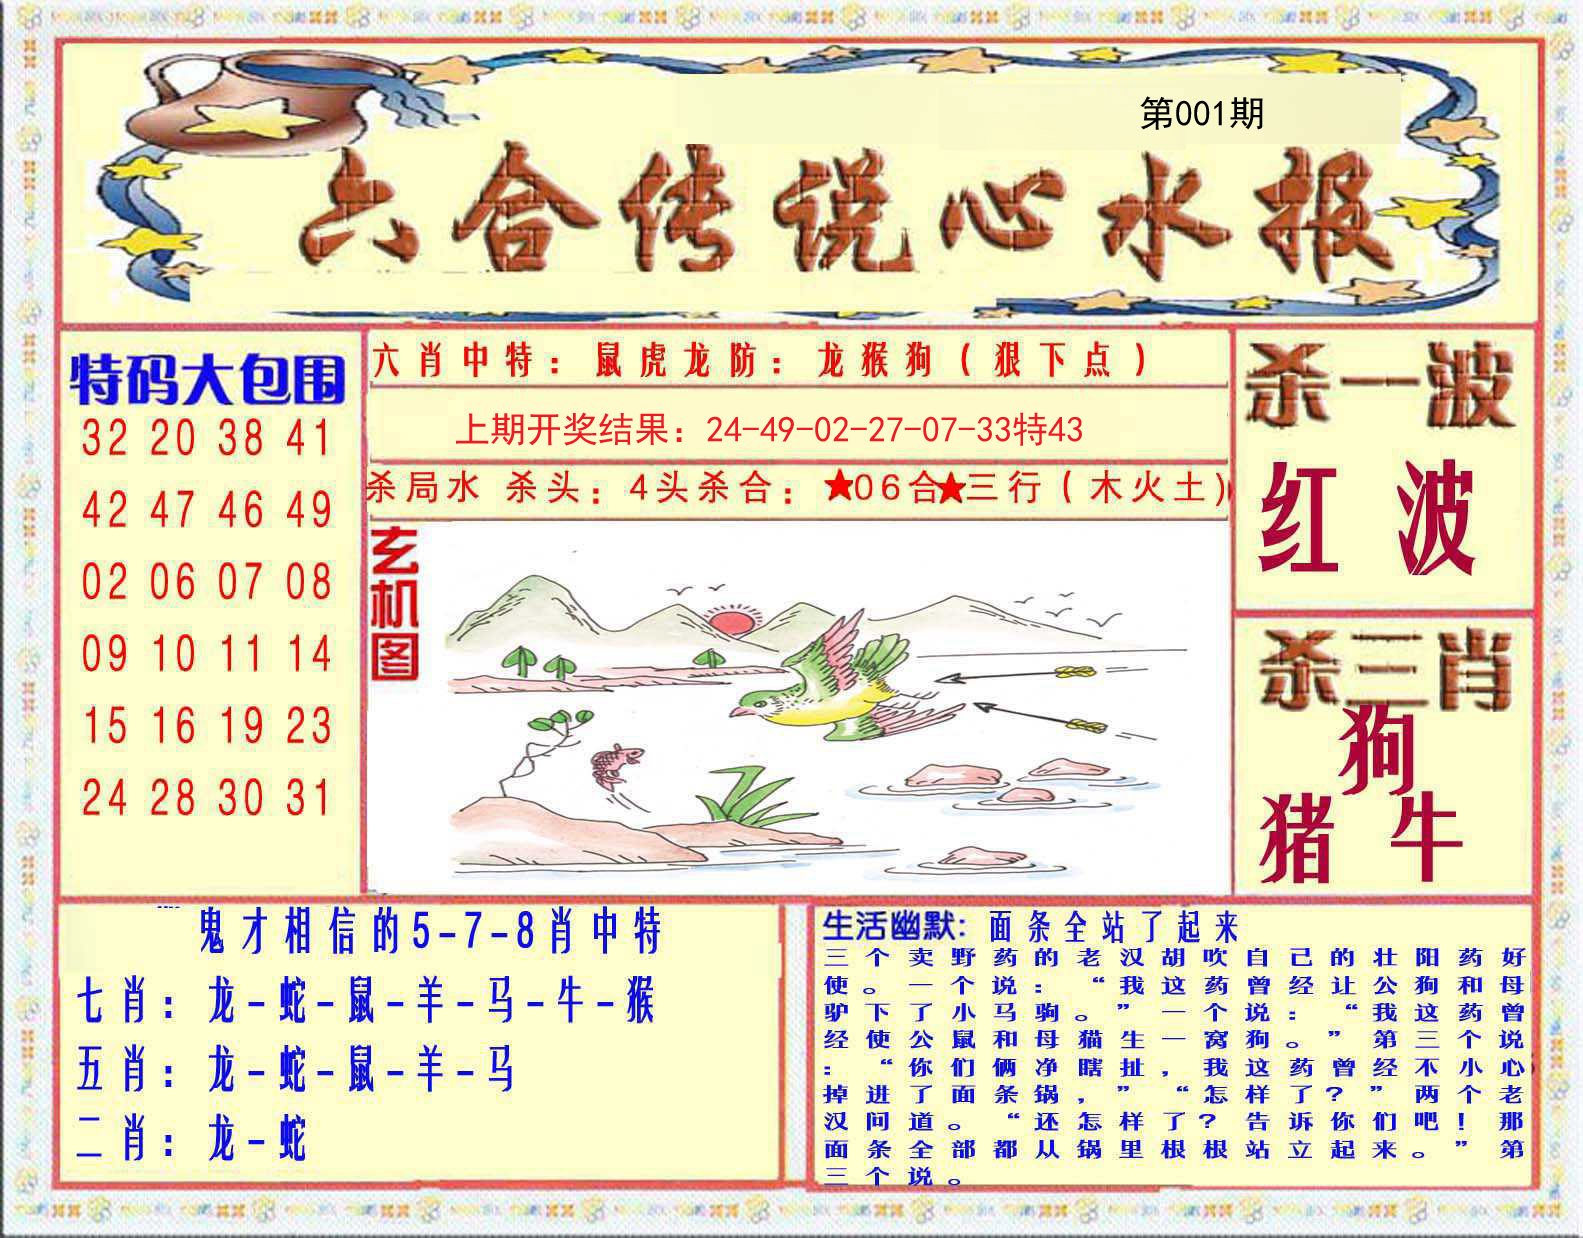 第001期
六合传说心水报
特码大包围
32 20 38 41
42 47 46 49
02 06 07 08
09 10 11 14
15 16 19 23
24 28 30 31
六肖中特：鼠虎龙防：龙猴狗（狠下点）
上期开奖结果：24-49-02-27-07-33特43
杀局水 杀头：4头杀合：★06合★三行（木火土）
玄机图
杀一波
红波
杀三肖
狗
猪 牛
鬼才相信的5-7-8肖中特
七肖：龙-蛇-鼠-羊-马-牛-猴
五肖：龙-蛇-鼠-羊-马
二肖：龙-蛇
生活幽默：面条全站了起来
三个卖野药的老汉胡吹自己的壮阳药好
使。一个说：“我这药曾经让公狗和母
驴下了小马驹。”一个说：“我这药曾
经使公鼠和母猫生一窝狗。”第三个说
：“你们俩净瞎扯，我这药曾经不小心
掉进了面条锅，”“怎样了？”两个老
汉问道。“还怎样了？告诉你们吧！那
面条全部都从锅里根根站立起来。”第
三个说。